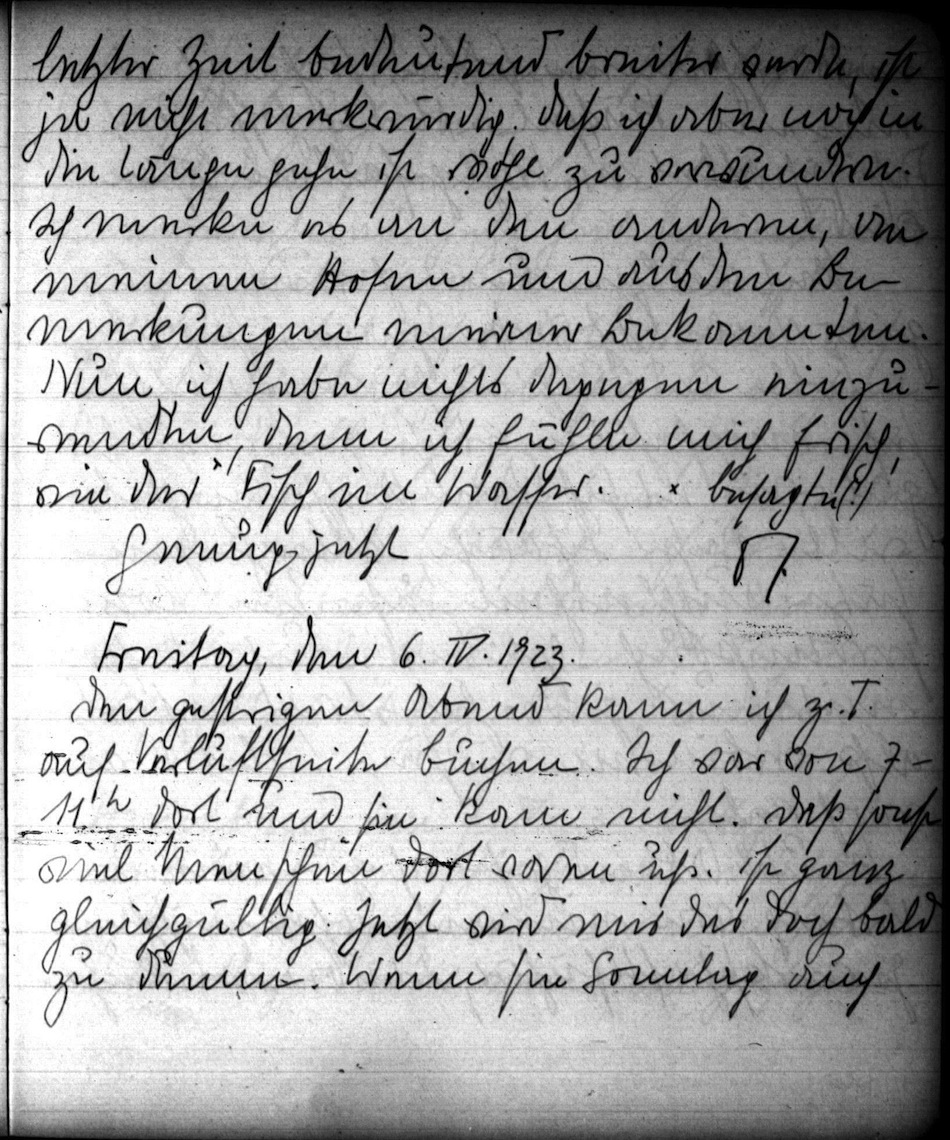 letzter Zeit bedeutend breiter werde, ist
ja nicht merkwürdig. Daß ich aber noch in
die Länge gehe ist wohl zu verwundern.
Ich merke es an den anderen, an
meinen Hosen und aus den Be-
merkungen meiner Bekannten.
Nun, ich habe nichts dagegen einzu-
wenden, denn ich fühle mich frisch,
wie der × Fisch im Wasser. × besagte(!)
Genug jetzt
Freitag, den 6. IV. 1923.
Den gestrigen Abend kann ich z. T.
auf Verlustseite buchen. Ich war von 7-
11 h dort und sie kam nicht. Daß sonst
viel Menschen dort waren usf. ist ganz
gleichgültig. Jetzt wird mir das doch bald
zu dumm. Wenn sie Sonntag auch